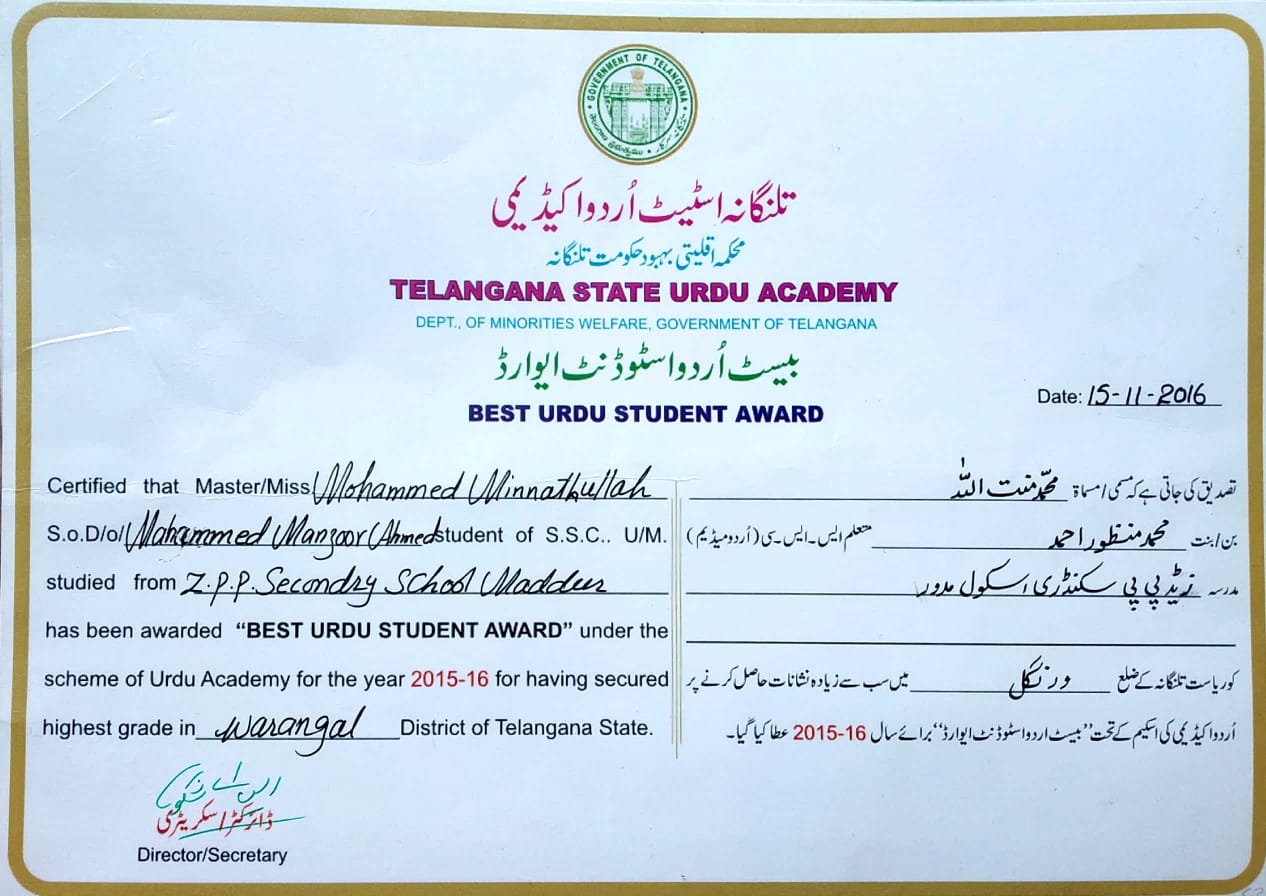 GOVERNMENT OF TELANGANA
تلنگانہ اسٹیٹ اُردو اکیڈیمی
محکمہ اقلیتی بہبود حکومت تلنگانہ
TELANGANA STATE URDU ACADEMY
DEPT., OF MINORITIES WELFARE, GOVERNMENT OF TELANGANA
بیسٹ اُردو اسٹوڈنٹ ایوارڈ
BEST URDU STUDENT AWARD
Date: 15-11-2016
Certified that Master/Miss Mohammed Minnathullah
S.o.D/o/ Mohammed Manzoor Ahmed student of S.S.C.. U/M.
studied from Z.P.P. Secondry School Maddur
has been awarded “BEST URDU STUDENT AWARD” under the
scheme of Urdu Academy for the year 2015-16 for having secured
highest grade in Warangal District of Telangana State.
تصدیق کی جاتی ہے کہ مسمی / مسماۃ محمد منت اللہ
بن / بنت محمد منظور احمد متعلم ایس۔ایس۔سی (اُردو میڈیم)
مدرسہ زیڈ پی پی سکنڈری اسکول مدور
کو ریاست تلنگانہ کے ضلع ورنگل میں سب سے زیادہ نشانات حاصل کرنے پر
اُردو اکیڈیمی کی اسکیم کے تحت ”بیسٹ اردو اسٹوڈنٹ ایوارڈ“ برائے سال 2015-16 عطا کیا گیا۔
ڈائرکٹر / سکریٹری
Director/Secretary